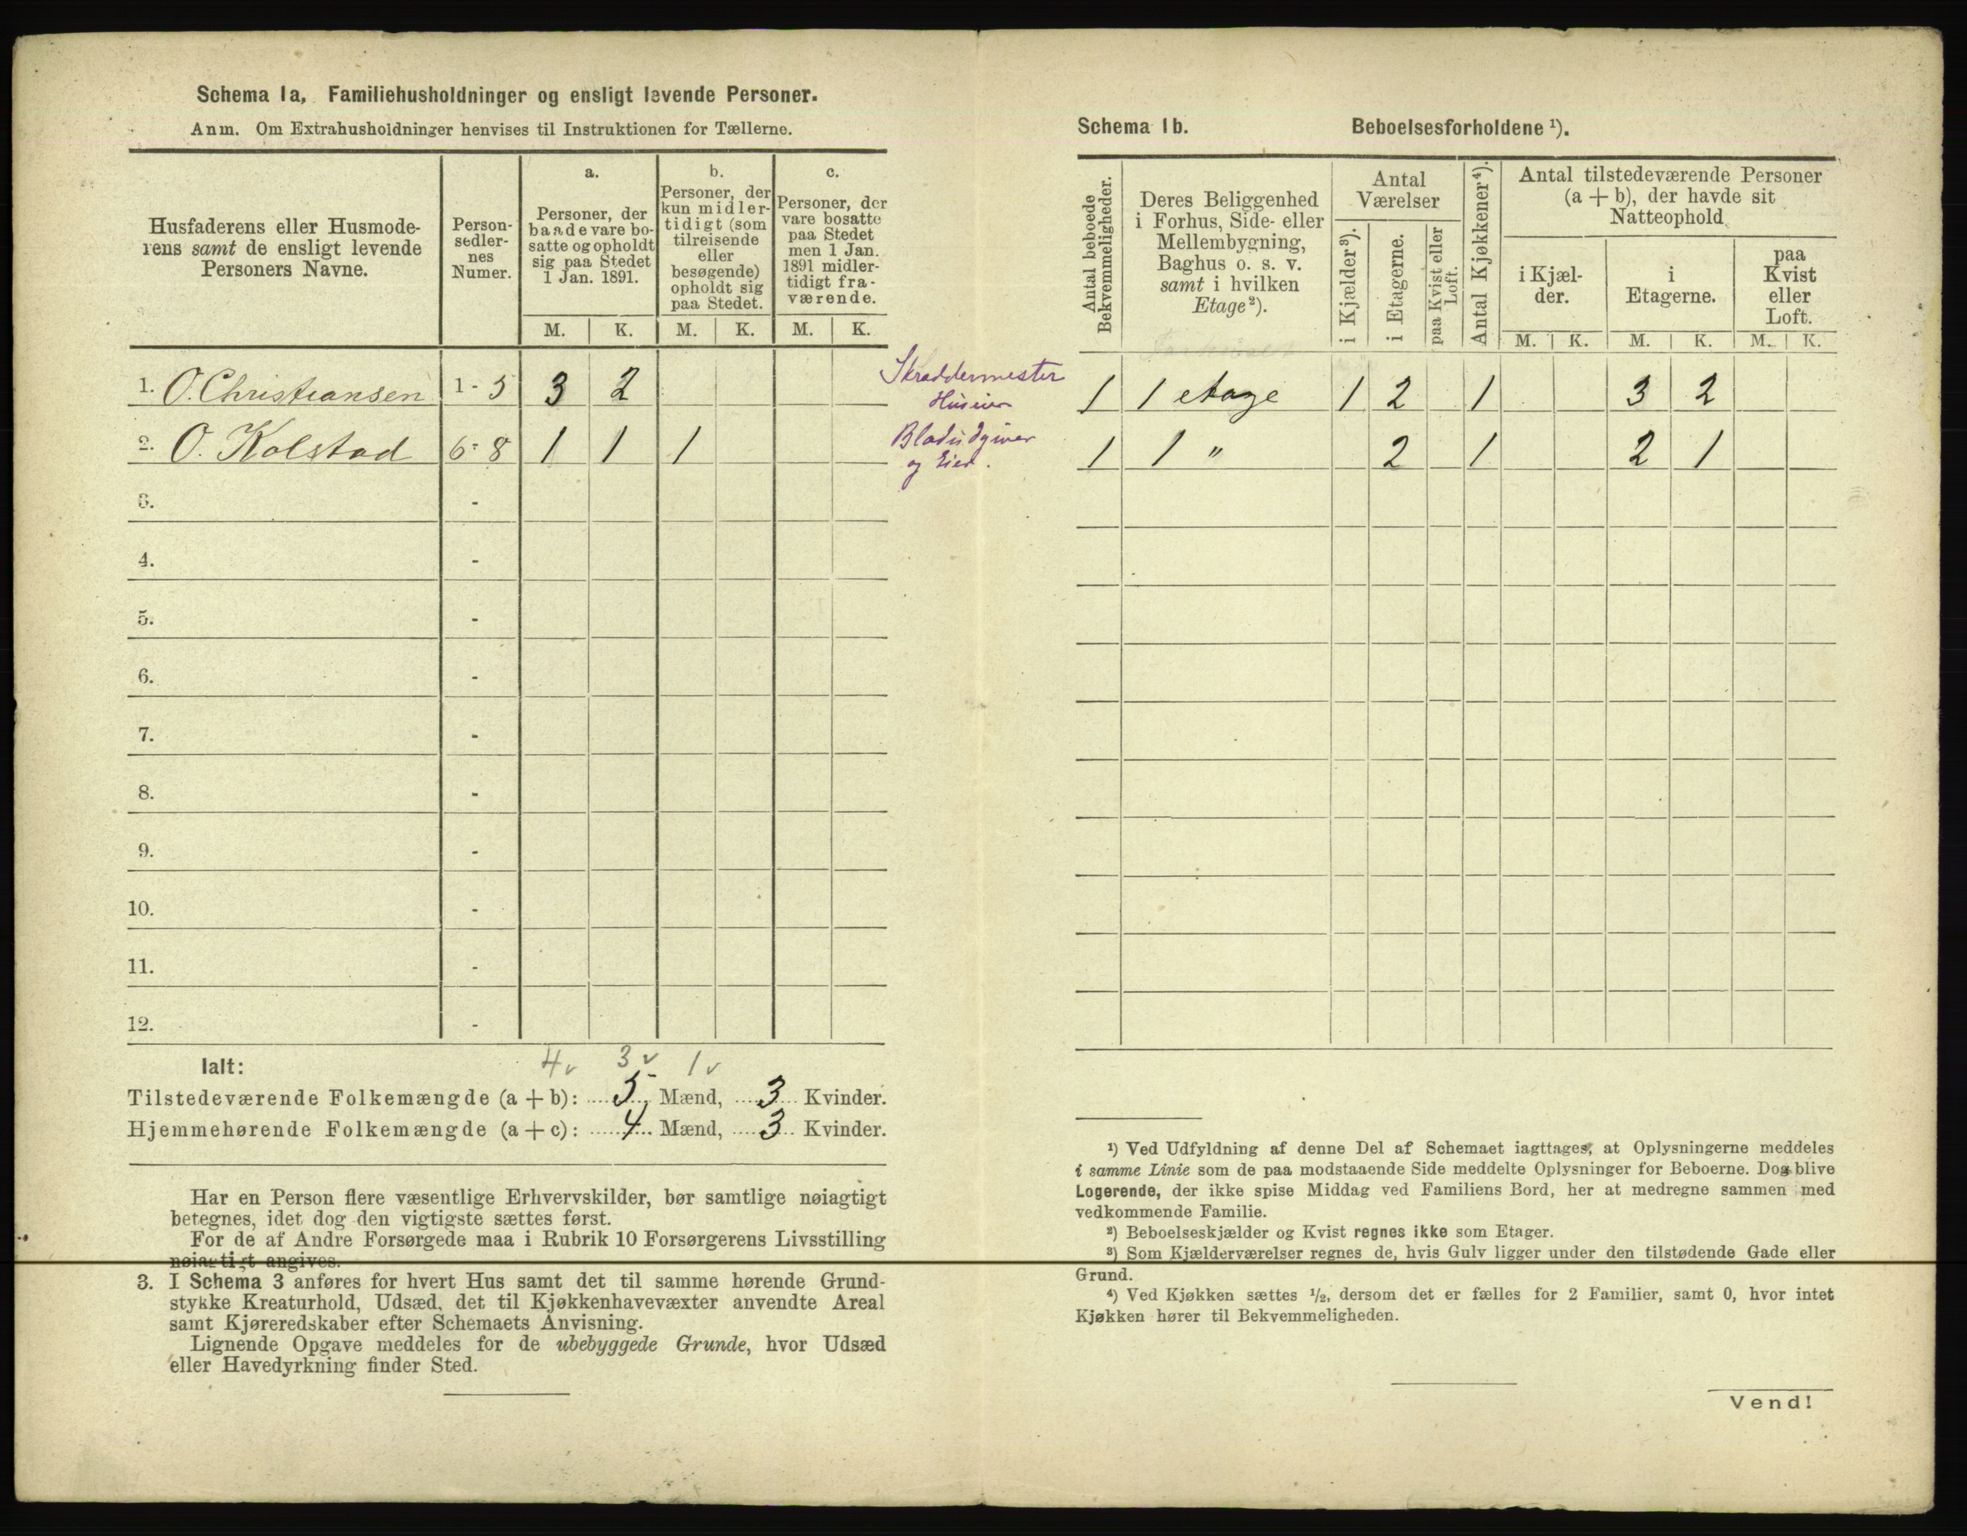 Schema 1a, Familiehusholdninger og ensligt levende Personer.
Anm. Om Extrahusholdninger henvises til Instruktionen for Tællerne.
Husfaderens eller Husmode-
rens samt de ensligt levende
Personers Navne.
Person-
sedler-
nes
Numer.
a.
Personer, der
baade vare bo-
satte og opholdt
sig paa Stedet
1 Jan. 1891.
b.
Personer, der
kun midler-
tidigt (som
tilreisende
eller
besøgende)
opholdt sig
paa Stedet.
c.
Personer, der
vare bosatte
paa Stedet
men 1 Jan.
1891 midler-
tidigt fra-
værende.
M. K. M. K. M. K.
1. O. Christiansen 1 - 5 3 2
Skræddermester
Huseier
2. O. Kolstad 6 - 8 1 1 1
Bladudgiver
og Eier.
3. -
4. -
5. -
6. -
7. -
8. -
9. -
10. -
11. -
12. -
Ialt: 4 v 3 v 1 v
Tilstedeværende Folkemængde (a + b): 5 Mænd, 3 Kvinder.
Hjemmehørende Folkemængde (a + c): 4 Mænd, 3 Kvinder.
Har en Person flere væsentlige Erhvervskilder, bør samtlige nøiagtigt
betegnes, idet dog den vigtigste sættes først.
For de af Andre Forsørgede maa i Rubrik 10 Forsørgerens Livsstilling
nøiagtigt angives.
3. I Schema 3 anføres for hvert Hus samt det til samme hørende Grund-
stykke Kreaturhold, Udsæd, det til Kjøkkenhavevæxter anvendte Areal
samt Kjøreredskaber efter Schemaets Anvisning.
Lignende Opgave meddeles for de ubebyggede Grunde, hvor Udsæd
eller Havedyrkning finder Sted.
Schema 1b. Beboelsesforholdene 1).
Antal beboede
Bekvemmeligheder.
Deres Beliggenhed
i Forhus, Side- eller
Mellembygning,
Baghus o. s. v.
samt i hvilken
Etage2).
Antal
Værelser
i Kjælder3).
i Etagerne.
paa Kvist eller
Loft.
Antal Kjøkkener4).
Antal tilstedeværende Personer
(a + b), der havde sit
Natteophold
i Kjæl-
der.
i
Etagerne.
paa
Kvist
eller
Loft.
M. K. M. K. M. K.
1 1 etage 1 2 1 3 2
1 1 " 2 1 2 1
1) Ved Udfyldning af denne Del af Schemaet iagttages, at Oplysningerne meddeles
i samme Linie som de paa modstaaende Side meddelte Oplysninger for Beboerne. Dog blive
Logerende, der ikke spise Middag ved Familiens Bord, her at medregne sammen med
vedkommende Familie.
2) Beboelseskjælder og Kvist regnes ikke som Etager.
3) Som Kjælderværelser regnes de, hvis Gulv ligger under den tilstødende Gade eller
Grund.
4) Ved Kjøkken sættes 1/2, dersom det er fælles for 2 Familier, samt 0, hvor intet
Kjøkken hører til Bekvemmeligheden.
Vend!